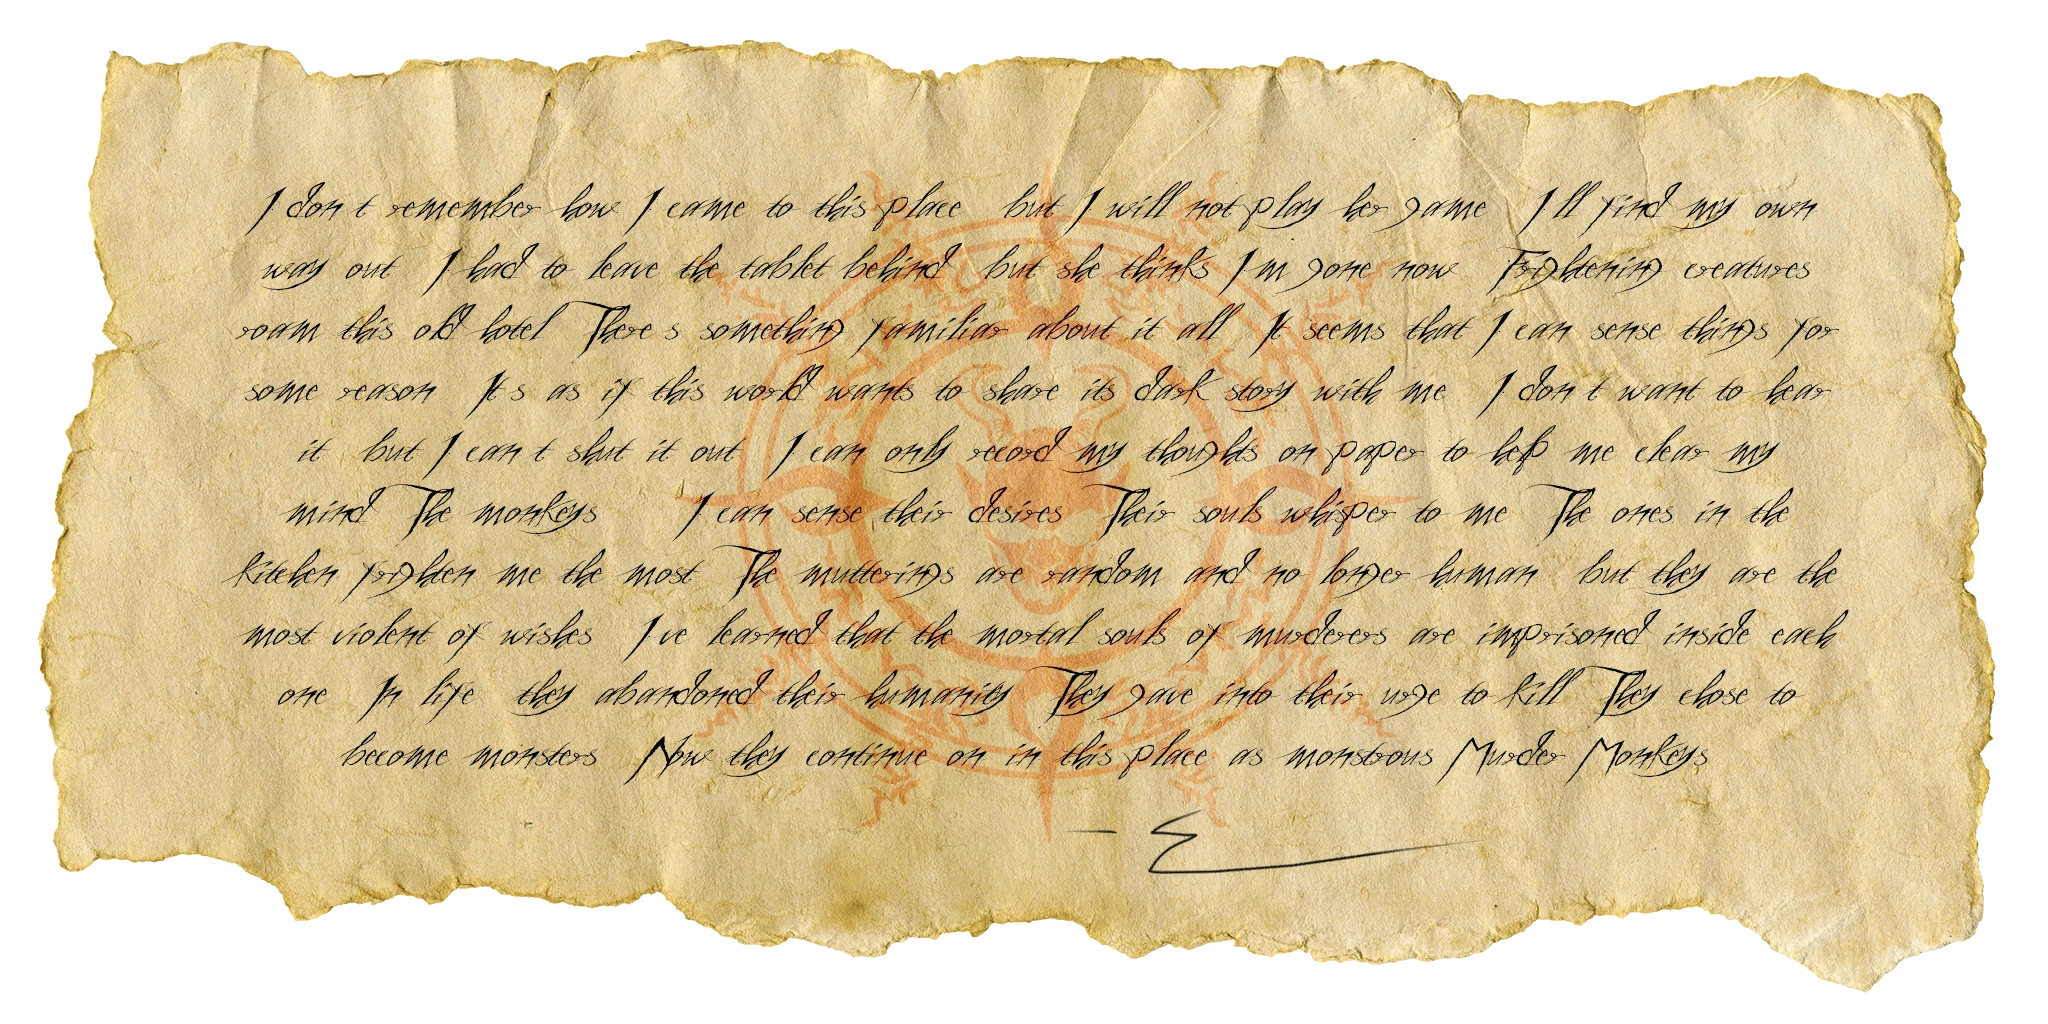 I don t remember how I came to this place but I will not play her game I ll find my own
way out I had to leave the tablet behind but she thinks I m gone now Frightening creatures
roam this old hotel There s something familiar about it all It seems that I can sense things for
some reason It s as if this world wants to share its dark story with me I don t want to hear
it but I can t shut it out I can only record my thoughts on paper to help me clear my
mind The monkeys I can sense their desires Their souls whisper to me The ones in the
kitchen frighten me the most The mutterings are random and no longer human but they are the
most violent of wishes I ve learned that the mortal souls of murderers are imprisoned inside each
one In life they abandoned their humanity They gave into their urge to kill They chose to
become monsters Now they continue on in this place as monstrous Murder Monkeys
- E